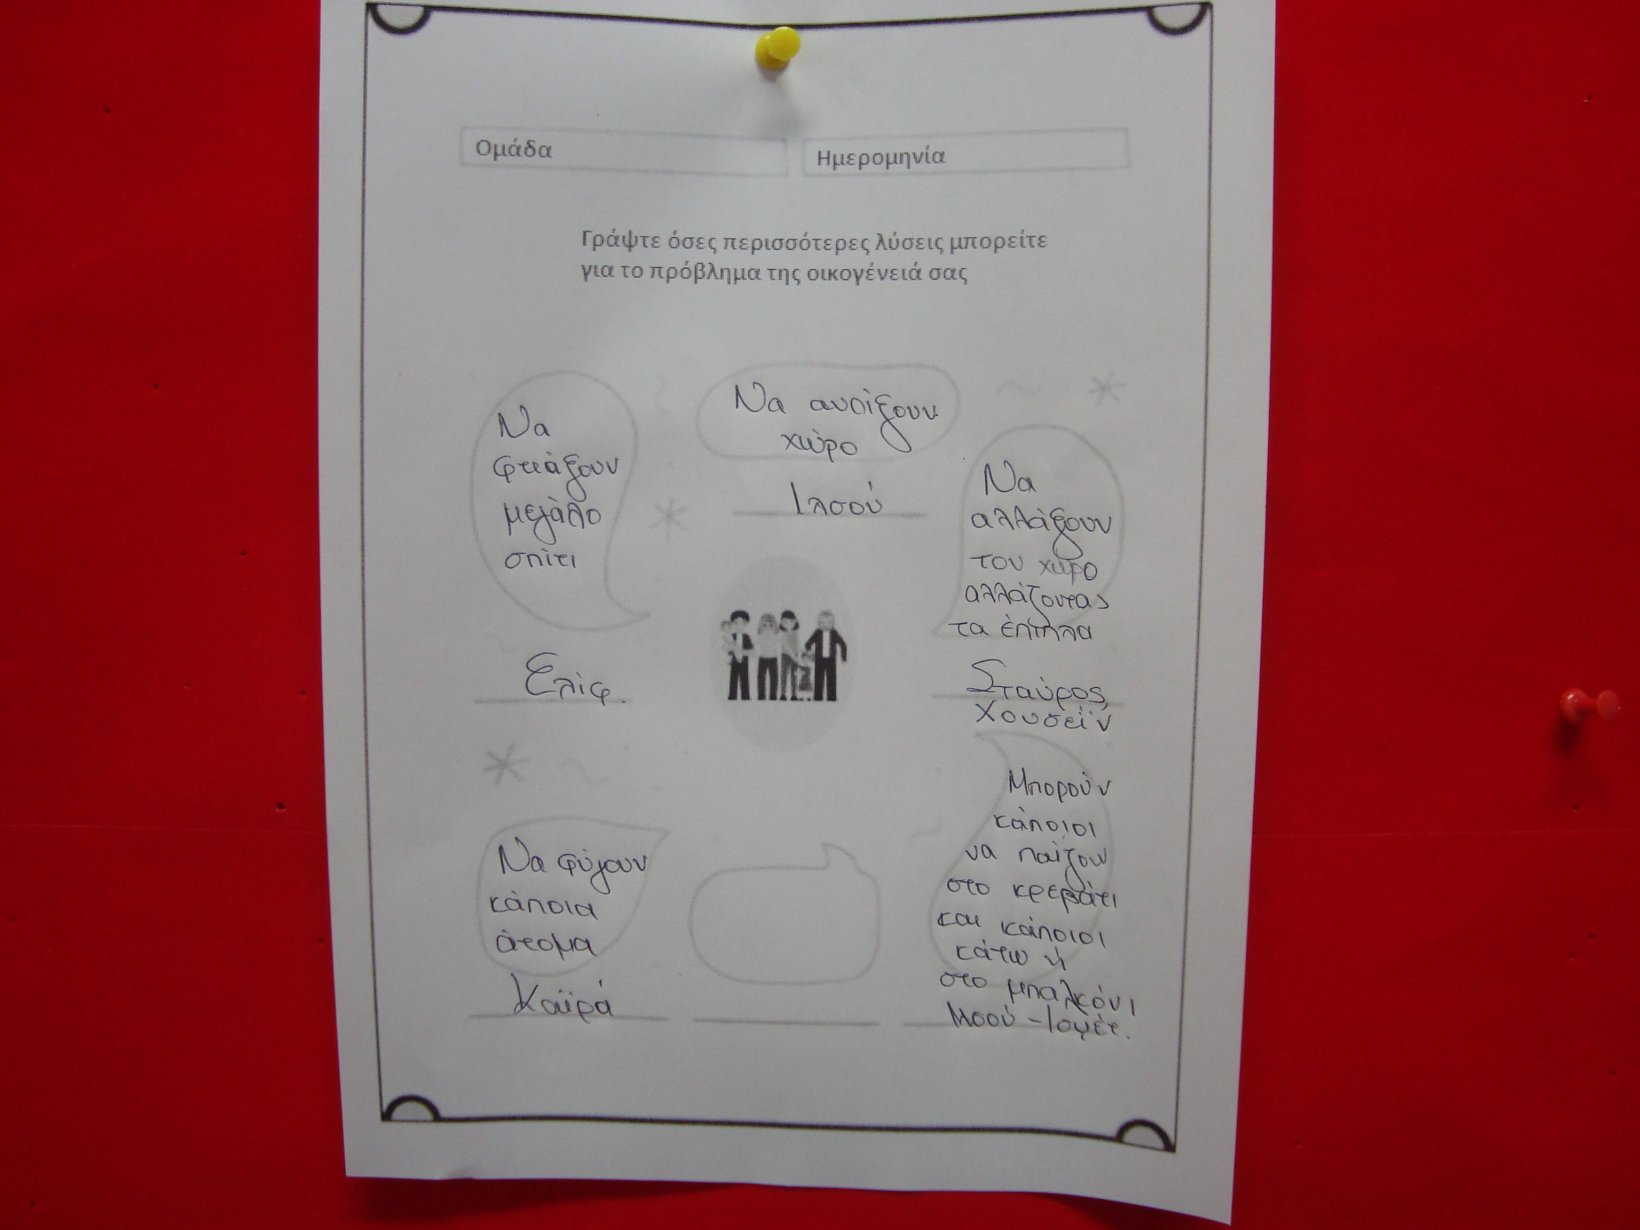 Ομάδα
Ημερομηνία
Γράψτε όσες περισσότερες λύσεις μπορείτε
για το πρόβλημα της οικογένειά σας
Να
φτιάξουν
μεγάλο
σπίτι
Ελίφ.
Να ανοίξουν
χώρο
Ιλσού
Να
αλλάξουν
τον χώρο
αλλάζοντας
τα έπιπλα
Σταύρος,
Χουσεΐν
Να φύγουν
κάποια
άτομα
Καϊρά
Μπορούν
κάποιοι
να παίζουν
στο κρεβάτι
και κάποιοι
κάτω ή
στο μπαλκόνι